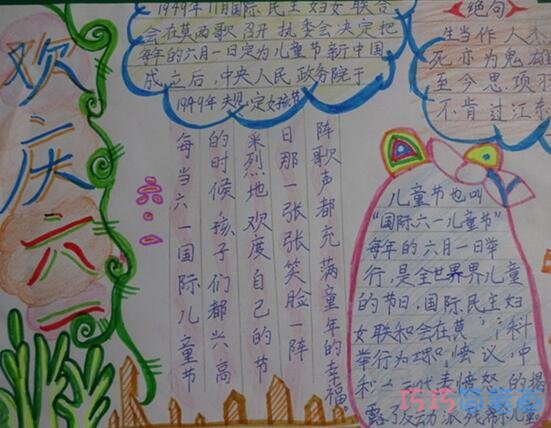 欢庆六一
1949年11月国际民主妇女联合
会在莫斯歌召开执委会决定把
每年的六月一日定为儿童节新中国
成立之后,中央人民政务院于
1949年规定
绝句
生当作人杰
死亦为鬼雄
至今思项羽
不肯过江东
六一
每当六一国际儿童节
的时候孩子们都兴高
采烈地欢度自己的节
日那一张张笑脸一阵
阵歌声都充满童年的幸福。
儿童节也叫
“国际六一儿童节”
每年的六月一日举
行,是全世界界儿童
的节日,国际民主妇
女联和会在莫 科
举行为理 议,中
和 代表愤怒的揭
露了 动派残 儿童